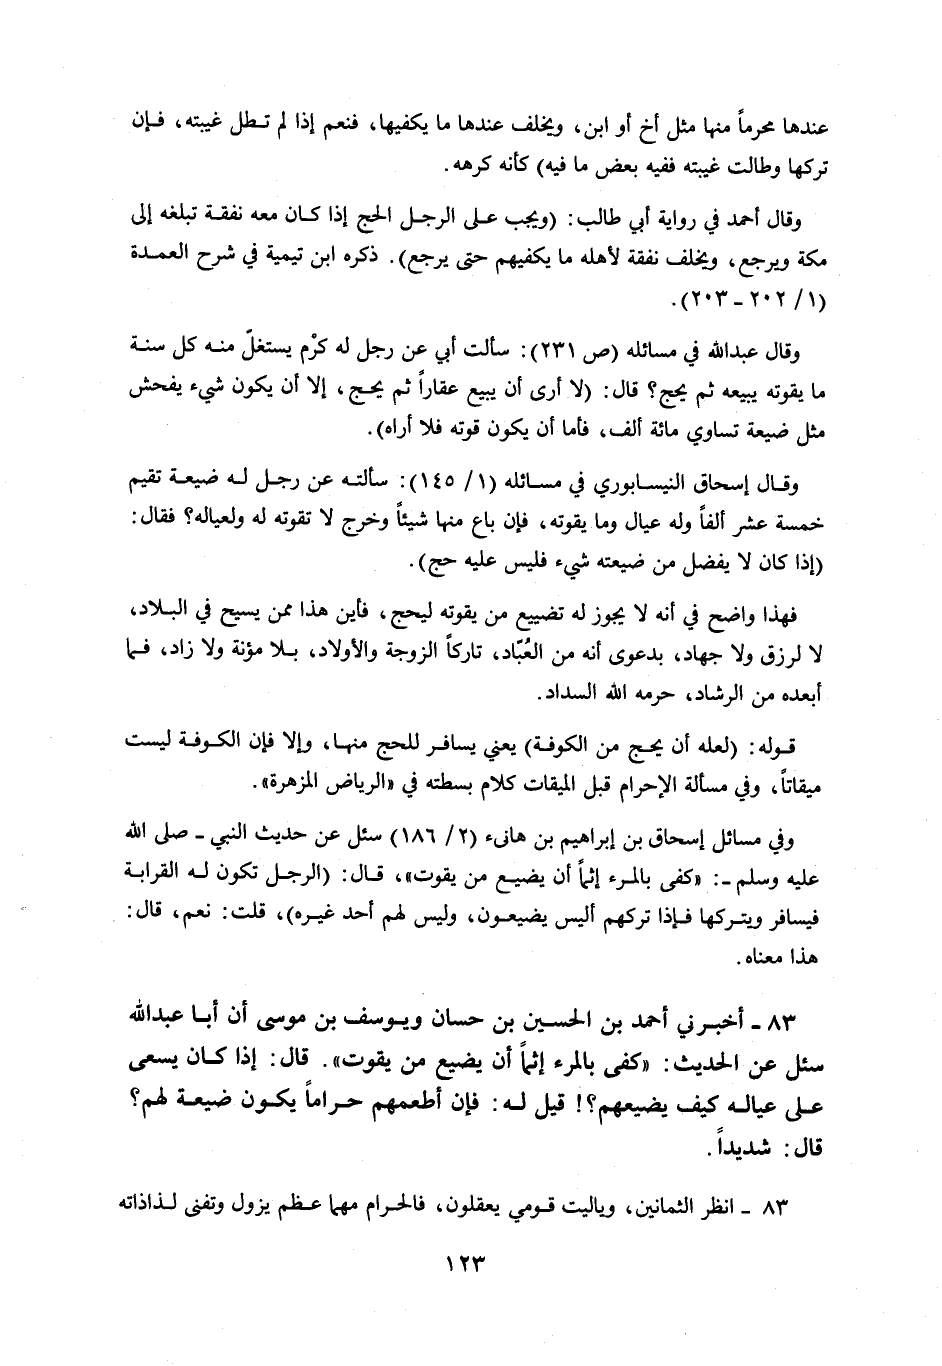 عندها محرماً منها مثل أخ أو ابن، ويخلف عندها ما يكفيها، فنعم إذا لم تـطل غيبته، فـإن
تركها وطالت غيبته ففيه بعض ما فيه) كأنه كرهه.
وقال أحمد في رواية أبي طالب: (ويجب على الرجل الحج إذا كان معه نفقة تبلغه إلى
مكة ويرجع، ويخلف نفقة لأهله ما يكفيهم حتى يرجع). ذكره ابن تيمية في شرح العمدة
(١/ ٢٠٢ - ٢٠٣).
وقال عبدالله في مسائله (ص ٢٣١): سألت أبي عن رجل له كرْم يستغلّ منه كل سنة
ما يقوته يبيعه ثم يحج؟ قال: (لا أرى أن يبيع عقاراً ثم يحج، إلا أن يكون شيء يفحش
مثل ضيعة تساوي مائة ألف، فأما أن يكون قوته فلا أراه).
وقال إسحاق النيسابوري في مسائله (١/ ١٤٥): سألته عن رجل له ضيعة تقيم
خمسة عشر ألفاً وله عيال وما يقوته، فإن باع منها شيئاً وخرج لا تقوته له ولعياله؟ فقال:
(إذا كان لا يفضل من ضيعته شيء فليس عليه حج).
فهذا واضح في أنه لا يجوز له تضييع من يقوته ليحج، فأين هذا ممن يسيح في البلاد،
لا لرزق ولا جهاد، بدعوى أنه من العُبّاد، تاركاً الزوجة والأولاد، بلا مؤنة ولا زاد، فما
أبعده من الرشاد، حرمه الله السداد.
قوله: (لعله أن يحج من الكوفة) يعني يسافر للحج منها، وإلا فإن الكوفة ليست
ميقاتاً، وفي مسألة الإحرام قبل الميقات كلام بسطته في «الرياض المزهرة».
وفي مسائل إسحاق بن إبراهيم بن هانىء (٢/ ١٨٦) سئل عن حديث النبي - صلى الله
عليه وسلم -: «كفى بالمرء إثماً أن يضيع من يقوت»، قال: (الرجل تكون له القرابة
فيسافر ويتركها فإذا تركهم أليس يضيعون، وليس لهم أحد غيره)، قلت: نعم، قال:
هذا معناه.
٨٣ - أخبرني أحمد بن الحسين بن حسان ويوسف بن موسى أن أبا عبدالله
سئل عن الحديث: «كفى بالمرء إثماً أن يضيع من يقوت». قال: إذا كان يسعى
على عياله كيف يضيعهم؟! قيل له: فإن أطعمهم حراماً يكون ضيعة لهم؟
قال: شديداً.
٨٣ - انظر الثمانين، وياليت قومي يعقلون، فالحرام مهما عظم يزول وتفنى لذاذاته
١٢٣